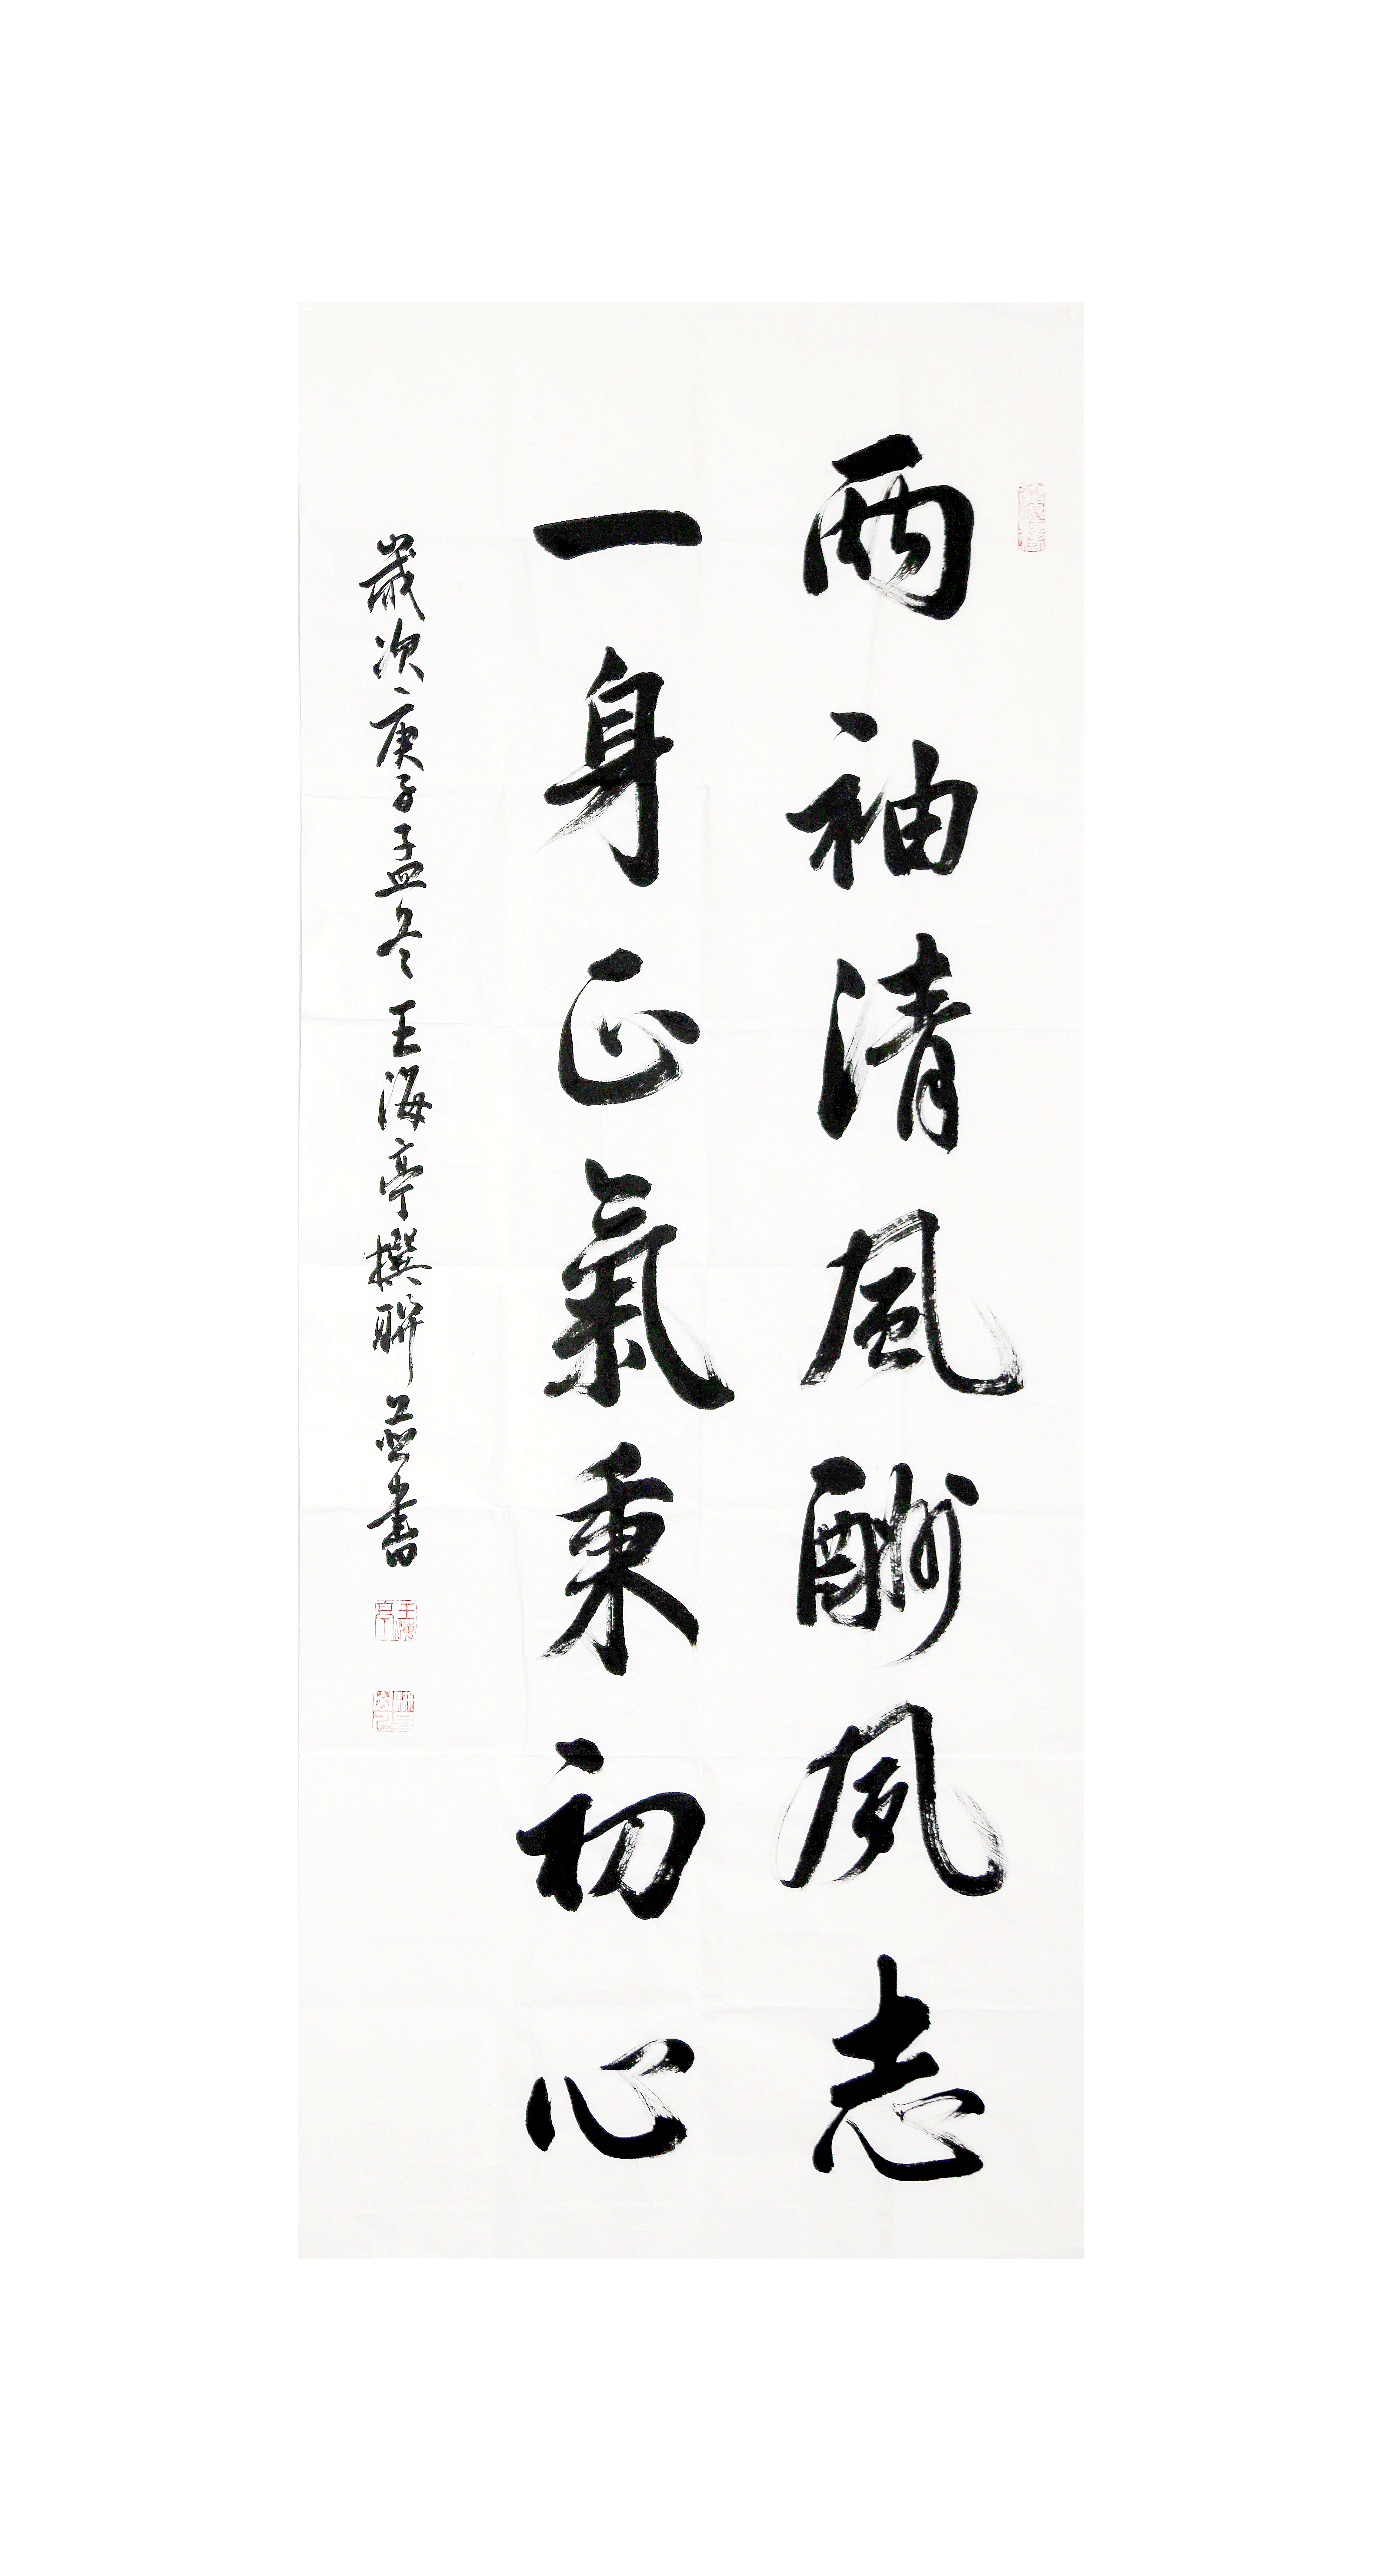 兩袖清風酬夙志
一身正氣秉初心
歲次庚子孟冬王海亭撰聯並書